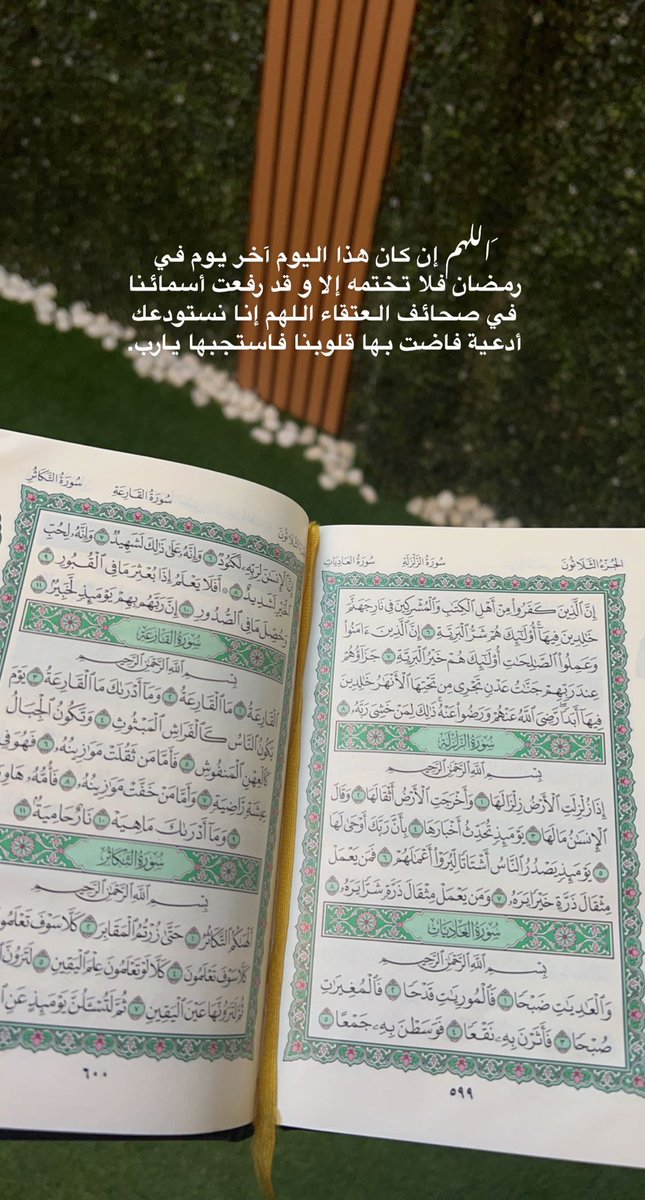 اَللهم إن كان هذا اليوم آخر يوم في
رمضان فلا تختمه إلا و قد رفعت أسمائنا
في صحائف العتقاء اللهم إنا نستودعك
أدعية فاضت بها قلوبنا فاستجبها يارب.
الجزء الثلاثون سورة الزلزلة سورة العاديات
إِنَّ ٱلَّذِينَ كَفَرُواْ مِنْ أَهْلِ ٱلْكِتَٰبِ وَٱلْمُشْرِكِينَ فِى نَارِ جَهَنَّمَ
خَٰلِدِينَ فِيهَآ أُوْلَٰٓئِكَ هُمْ شَرُّ ٱلْبَرِيَّةِ ٦ إِنَّ ٱلَّذِينَ ءَامَنُواْ
وَعَمِلُواْ ٱلصَّٰلِحَٰتِ أُوْلَٰٓئِكَ هُمْ خَيْرُ ٱلْبَرِيَّةِ ٧ جَزَآؤُهُمْ
عِندَ رَبِّهِمْ جَنَّٰتُ عَدْنٍ تَجْرِى مِن تَحْتِهَا ٱلْأَنْهَٰرُ خَٰلِدِينَ
فِيهَآ أَبَدًا رَّضِىَ ٱللَّهُ عَنْهُمْ وَرَضُواْ عَنْهُ ذَٰلِكَ لِمَنْ خَشِىَ رَبَّهُۥ ٨
سورة الزلزلة
بِسْمِ ٱللَّهِ ٱلرَّحْمَٰنِ ٱلرَّحِيمِ
إِذَا زُلْزِلَتِ ٱلْأَرْضُ زِلْزَالَهَا ١ وَأَخْرَجَتِ ٱلْأَرْضُ أَثْقَالَهَا ٢ وَقَالَ
ٱلْإِنسَٰنُ مَا لَهَا ٣ يَوْمَئِذٍ تُحَدِّثُ أَخْبَارَهَا ٤ بِأَنَّ رَبَّكَ أَوْحَىٰ لَهَا
٥ يَوْمَئِذٍ يَصْدُرُ ٱلنَّاسُ أَشْتَاتًا لِّيُرَوْاْ أَعْمَٰلَهُمْ ٦ فَمَن يَعْمَلْ
مِثْقَالَ ذَرَّةٍ خَيْرًا يَرَهُۥ ٧ وَمَن يَعْمَلْ مِثْقَالَ ذَرَّةٍ شَرًّا يَرَهُۥ ٨
سورة العاديات
بِسْمِ ٱللَّهِ ٱلرَّحْمَٰنِ ٱلرَّحِيمِ
وَٱلْعَٰدِيَٰتِ ضَبْحًا ١ فَٱلْمُورِيَٰتِ قَدْحًا ٢ فَٱلْمُغِيرَٰتِ
صُبْحًا ٣ فَأَثَرْنَ بِهِۦ نَقْعًا ٤ فَوَسَطْنَ بِهِۦ جَمْعًا ٥
٥٩٩
سورة القارعة سورة التكاثر
إِنَّ ٱلْإِنسَٰنَ لِرَبِّهِۦ لَكَنُودٌ ٦ وَإِنَّهُۥ عَلَىٰ ذَٰلِكَ لَشَهِيدٌ ٧ وَإِنَّهُۥ لِحُبِّ
ٱلْخَيْرِ لَشَدِيدٌ ٨ أَفَلَا يَعْلَمُ إِذَا بُعْثِرَ مَا فِى ٱلْقُبُورِ ٩
وَحُصِّلَ مَا فِى ٱلصُّدُورِ ١٠ إِنَّ رَبَّهُم بِهِمْ يَوْمَئِذٍ لَّخَبِيرٌ ١١
سورة القارعة
بِسْمِ ٱللَّهِ ٱلرَّحْمَٰنِ ٱلرَّحِيمِ
ٱلْقَارِعَةُ ١ مَا ٱلْقَارِعَةُ ٢ وَمَآ أَدْرَىٰكَ مَا ٱلْقَارِعَةُ ٣ يَوْمَ
يَكُونُ ٱلنَّاسُ كَٱلْفَرَاشِ ٱلْمَبْثُوثِ ٤ وَتَكُونُ ٱلْجِبَالُ
كَٱلْعِهْنِ ٱلْمَنفُوشِ ٥ فَأَمَّا مَن ثَقُلَتْ مَوَٰزِينُهُۥ ٦ فَهُوَ فِى
عِيشَةٍ رَّاضِيَةٍ ٧ وَأَمَّا مَنْ خَفَّتْ مَوَٰزِينُهُۥ ٨ فَأُمُّهُۥ
٩ وَمَآ أَدْرَىٰكَ مَا هِيَهْ ١٠ نَارٌ حَامِيَةٌ ١١
سورة التكاثر
بِسْمِ ٱللَّهِ ٱلرَّحْمَٰنِ ٱلرَّحِيمِ
أَلْهَىٰكُمُ ٱلتَّكَاثُرُ ١ حَتَّىٰ زُرْتُمُ ٱلْمَقَابِرَ ٢ كَلَّا سَوْفَ تَعْلَمُونَ
كَلَّا سَوْفَ تَعْلَمُونَ ٤ كَلَّا لَوْ تَعْلَمُونَ عِلْمَ ٱلْيَقِينِ ٥ لَتَرَوُنَّ
لَتَرَوُنَّهَا عَيْنَ ٱلْيَقِينِ ٧ ثُمَّ لَتُسْـَٔلُنَّ يَوْمَئِذٍ عَنِ
٦٠٠